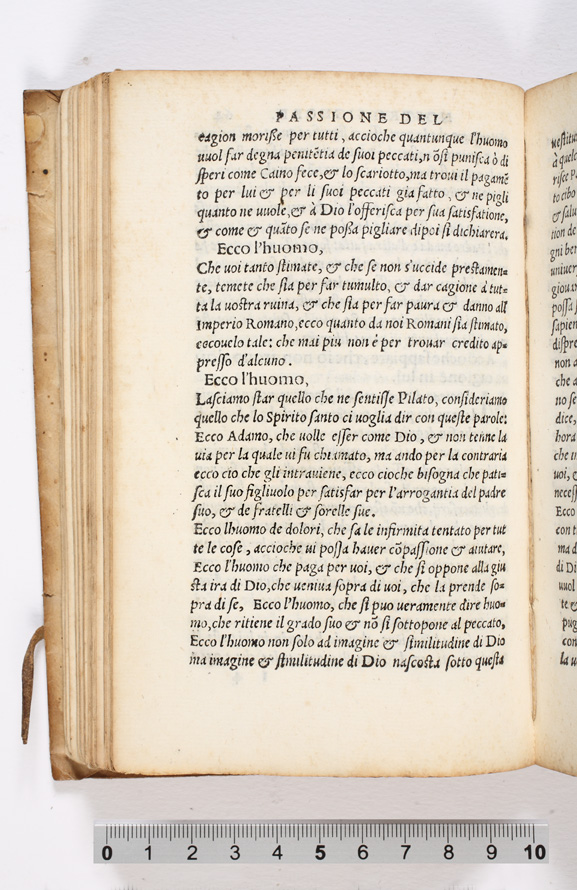 PASSIONE DEL
cagion moriße per tutti, accioche quantunque l'huomo
uuol far degna penitẽtia de suoi peccati, n õ si punisca ò di
speri come Caino fece, & lo scariotto, ma troui il pagamẽ
to per lui & per li suoi peccati gia fatto, & ne pigli
quanto ne uuole, & à Dio l'offerisca per sua satisfatione,
& come & quãto se ne poßa pigliare dipoi si dichiarera.
Ecco l'huomo,
Che uoi tanto stimate, & che se non s'uccide prestamen-
te, temete che sia per far tumulto, & dar cagione à tut-
ta la uostra ruina, & che sia per far paura & danno all'
Imperio Romano, ecco quanto da noi Romani sia stimato,
eccouelo tale: che mai piu non è per trouar credito ap-
presso d'alcuno.
Ecco l'huomo,
Lasciamo star quello che ne sentisse Pilato, consideriamo
quello che lo Spirito santo ci uoglia dir con queste parole:
Ecco Adamo, che uolle esser come Dio, & non tenne la
uia per la quale ui fu chiamato, ma ando per la contraria
ecco cio che gli intrauiene, ecco cioche bisogna che pati-
sca il suo figliuolo per satisfar per l'arrogantia del padre
suo, & de fratelli & sorelle sue.
Ecco lhuomo de dolori, che sa le infirmita tentato per tut
te le cose, accioche ui possa hauer cõpassione & aiutare,
Ecco l'huomo che paga per uoi, & che si oppone alla giu
sta ira di Dio, che ueniua sopra di uoi, che la prende so-
pra di se, Ecco l'huomo, che si puo ueramente dire huo-
mo, che ritiene il grado suo & nõ si sottopone al peccato,
Ecco l'huomo non solo ad imagine & similitudine di Dio
ma imagine & similitudine di Dio nascosta sotto questa
0 1 2 3 4 5 6 7 8 9 10